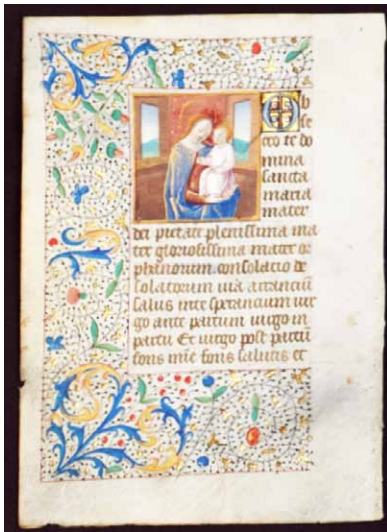 Ob
se
cro te do
mina
sancta
maria
mater
dei pietate plenissima ma
ter gloriosissima mater or
phanorum consolacio de
solatorum via arranciu̅
salus in te sperancium vir
go ante partum virgo in
partu Et virgo post partu̅
fons mie fons salutis et